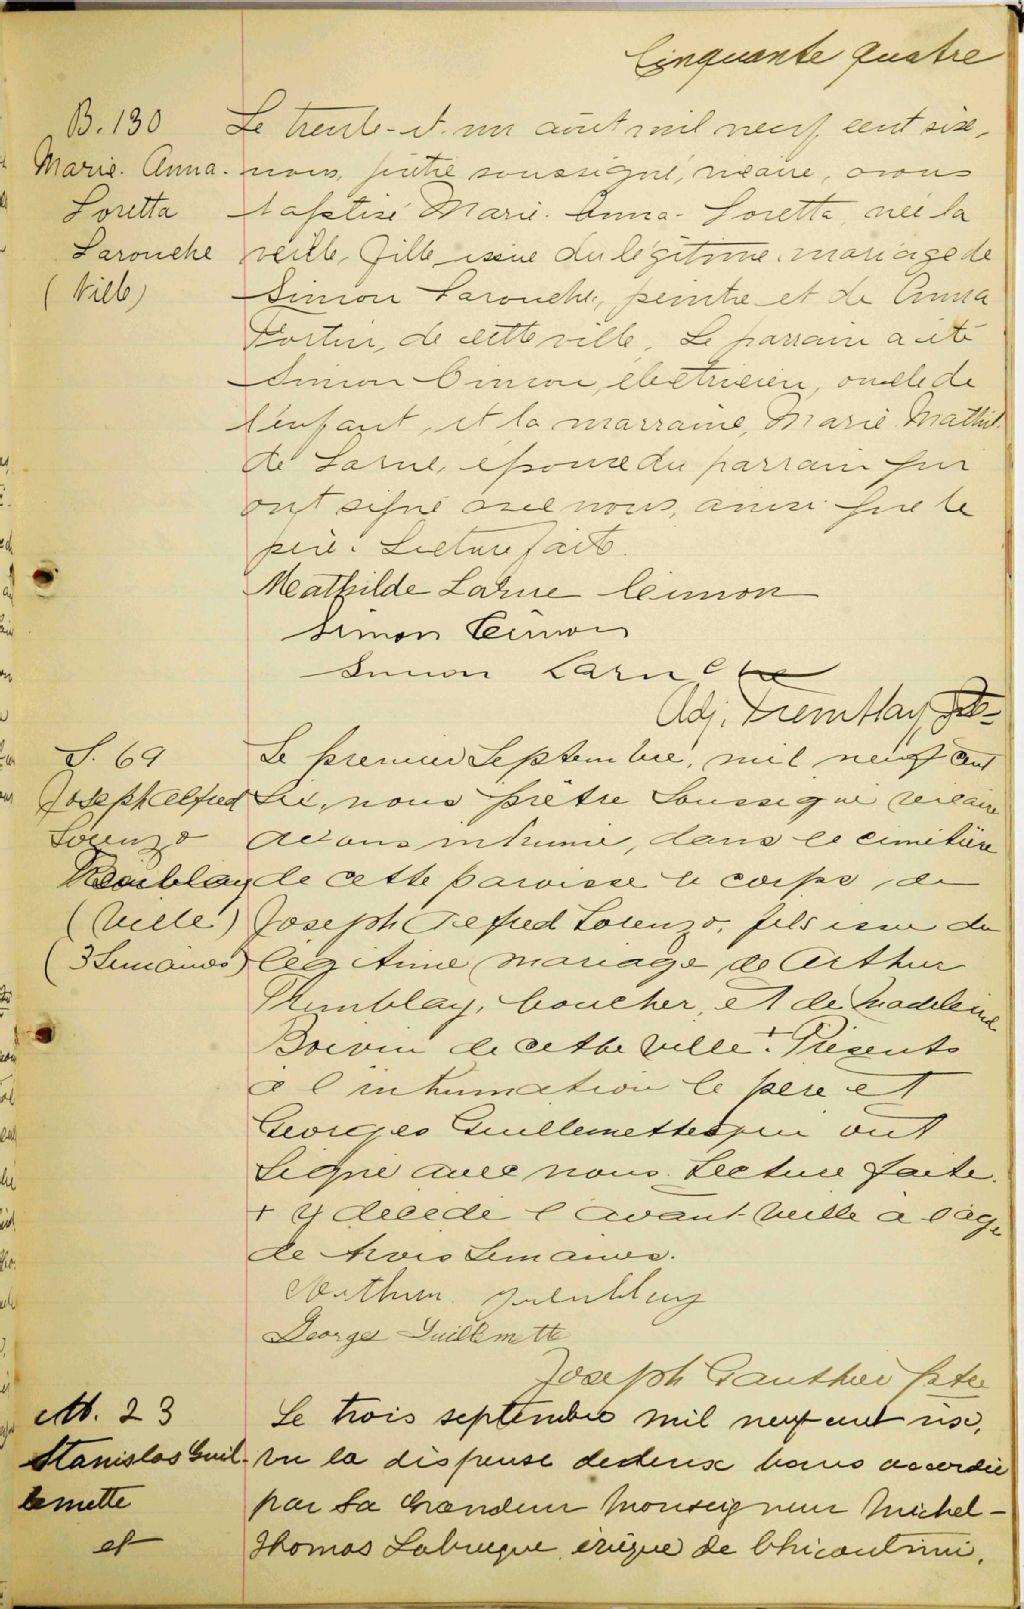 Cinquante quatre
B. 130
Marie. Anna.
Loretta
Larouche
(Ville)
Le trente-et-un août mil neuf cent six,
nous, prêtre soussigné, vicaire, avons
baptisé Marie-Anna-Loretta, née la
veille, fille issue du légitime mariage de
Simon Larouche, peintre et de Anna
Fortin, de cette ville. Le parrain a été
Simon Cimon, électricien, oncle de
l'enfant, et la marraine, Marie Mathil-
de Larue, épouse du parrain qui
ont signé avec nous, ainsi que le
père. Lecture faite.
Mathilde Larue Cimon
Simon Cimon
Simon Larouche
Adj. Tremblay, Ptre
S. 69
Joseph Alfred
Lorenzo
Tremblay
(Ville)
(3 Semaines)
Le premier Septembre, mil neuf cent
six, nous prêtre soussigné vicaire
avons inhumé, dans le cimetière
de cette paroisse le corps, de
Joseph Alfred Lorenzo, fils issu du
légitime mariage de Arthur
Tremblay, boucher, et de Madeleine
Boivin de cette ville +. Présents
à l'inhumation le père et
Georges Guillemette qui ont
signé avec nous. Lecture faite.
+ y décédé l'avant-veille à l'âge
de trois semaines.
Arthur Tremblay
George Guillemette
Joseph Gauthier ptre
M. 23
Stanislas Guil-
lemette
et
Le trois septembre mil neuf cent six,
vu la dispense de deux bans accordée
par Sa Grandeur Monseigneur Michel-
Thomas Labrecque, évêque de Chicoutimi,